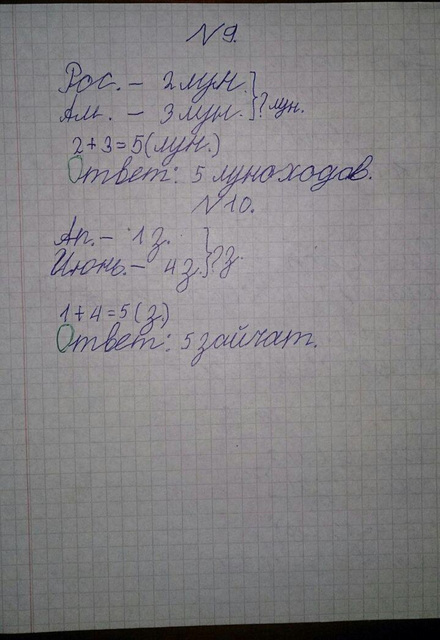 N 9.
Рос. - 2 лун.
Ам. - 3 лун. } ? лун.
2 + 3 = 5 (лун.)
Ответ: 5 луноходов.
N 10.
Ап. - 1 з.
Июнь. - 4 з. } ? з.
1 + 4 = 5 (з.)
Ответ: 5 зайчат.